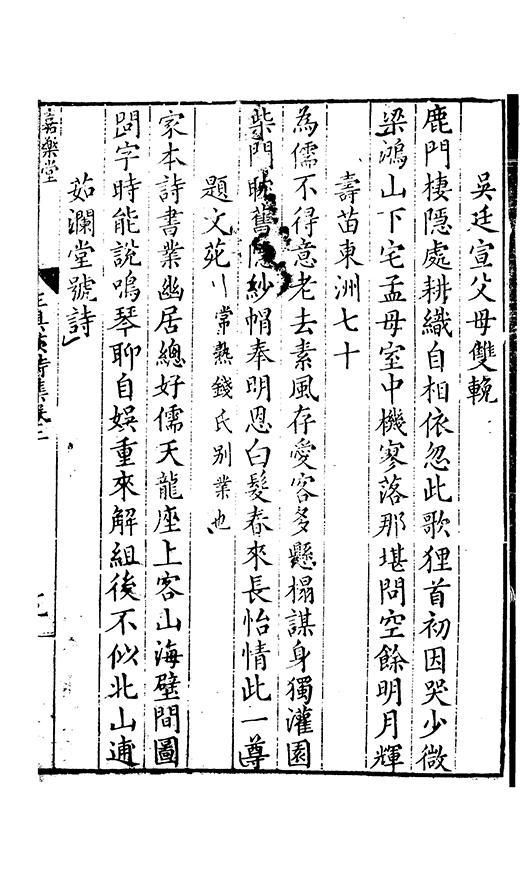 吳廷宣父母雙輓
鹿門棲隱處耕織自相依忽此歌狸首初因哭少微
梁鴻山下宅孟母室中機寥落那堪問空餘明月輝
壽苗東洲七十
為儒不得意老去素風存愛客多懸榻謀身獨灌園
柴門舊隱紗帽奉明恩白髮春來長怡情此一尊
題文苑常熟錢氏別業也
家本詩書業幽居總好儒天龍座上客山海壁間圖
問字時能說鳴琴聊自娛重來解組後不似北山逋
茹瀾堂號詩
嘉樂堂
詩集卷二